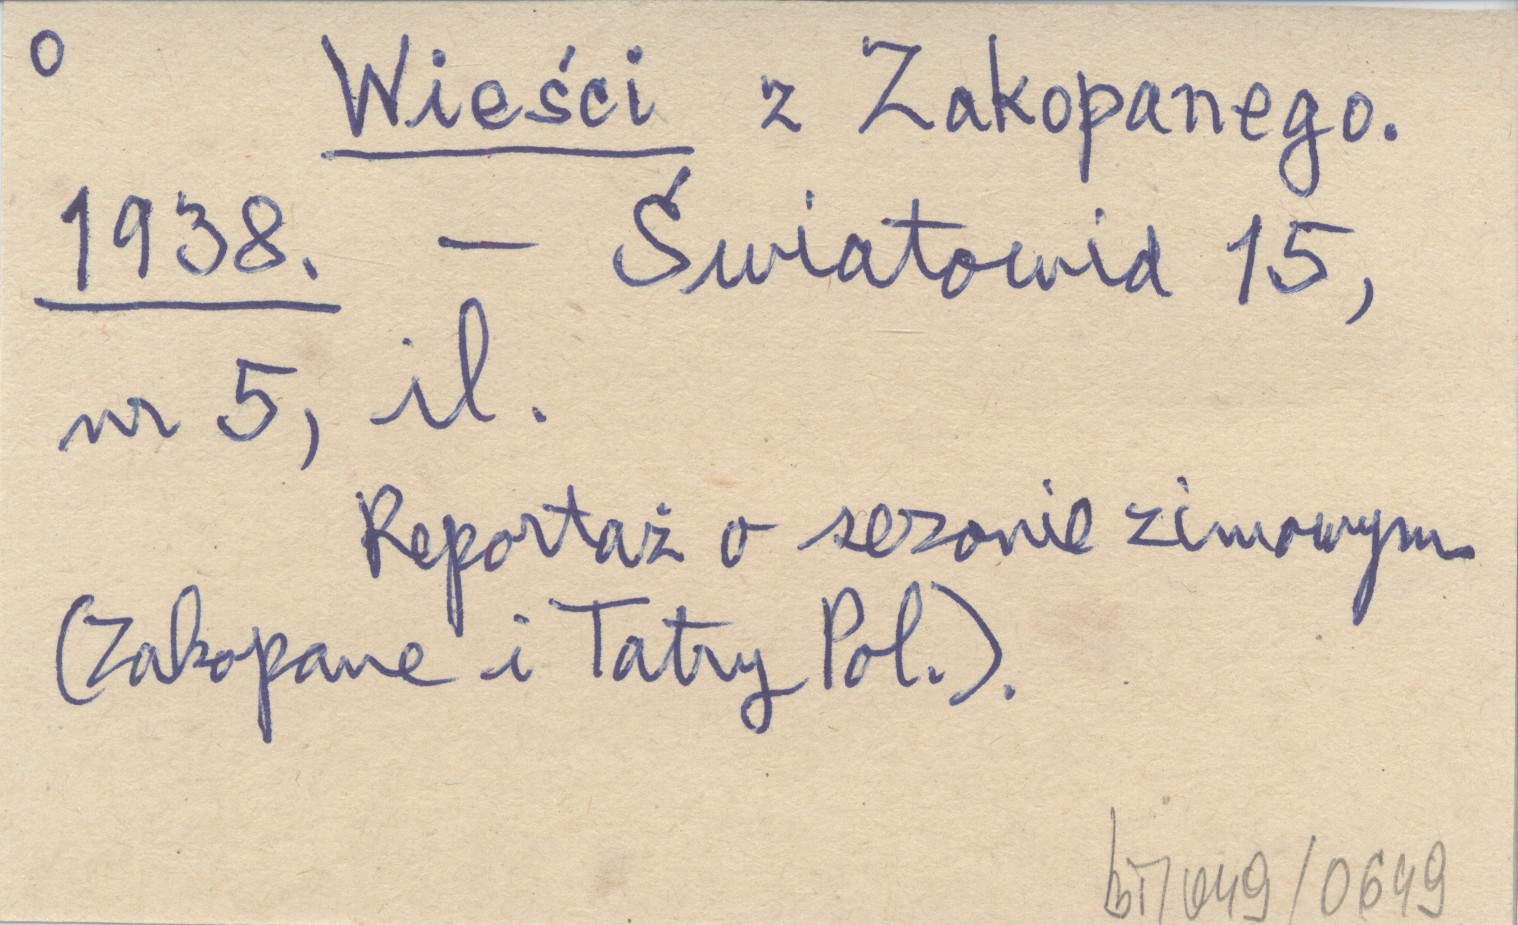 o Wieści z Zakopanego.
1938. — Światowid 15,
nr 5, il.
Reportaż o sezonie zimowym
(Zakopane i Tatry Pol.).
bT/049/0649